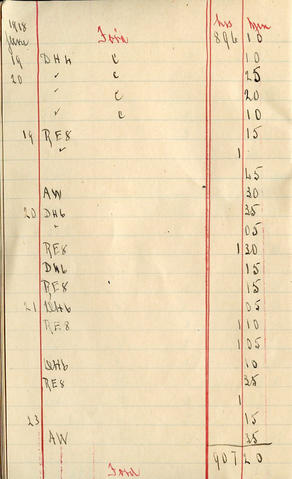 1918 hrs min
June Ford 896 10
19 DH6 c 10
20 ✓ c 25
✓ c 20
✓ c 10
19 RE8 15
✓ 1
45
AW 30
20 DH6 35
" 05
RE8 1 30
DH6 15
RE8 15
21 DH6 05
RE8 1 10
1 05
DH6 10
RE8 35
1
23 15
AW 35
Ford 907 20